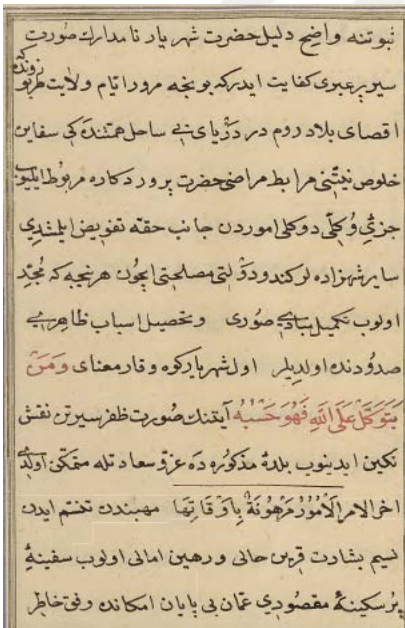 ثبوتنه واضح دليل حضرت شهريار نامدارك صورت
سيرپر عبرى كفايت ايدر كه بونجه مرور ايام ولايت طربزونده كه
اقصاى بلاد روم در درياى بى ساحل همتنده كى سفاين
خلوص نيتنى مرابط مراضئ حضرت پروردكاره مربوط ايليوب
جزئى وكلى دوكلى اموردن جانب حقه تفويض ايلمشدى
ساير شهزاده لر كندو دولتى مصلحتى ايچون هر نيجه كه مجد
اولوب تكميل مبادئ صورى و تحصيل اسباب ظاهرى
صدودنده اولديلر اول شهريار كوه وقار معناى وَمَنْ
يَتَوَكَّلْ عَلَى اللّٰهِ فَهُوَ حَسْبُهُ آيتنك صورت ظفر سيرتن نقش
نكين ايدينوب بلدۀ مذكوره ده عز و سعادتله متمكن اولدى
اخر الامر اَلْاُمُورُ مَرْهُونَةٌ بِاَوْقَاتِهَا مهبندن تنسم ايدن
نسيم بشارت قرين حالى و رهين امالى اولوب سفينۀ
پر سكينۀ مقصودى عمان بى پايان امكانده وفق خاطر